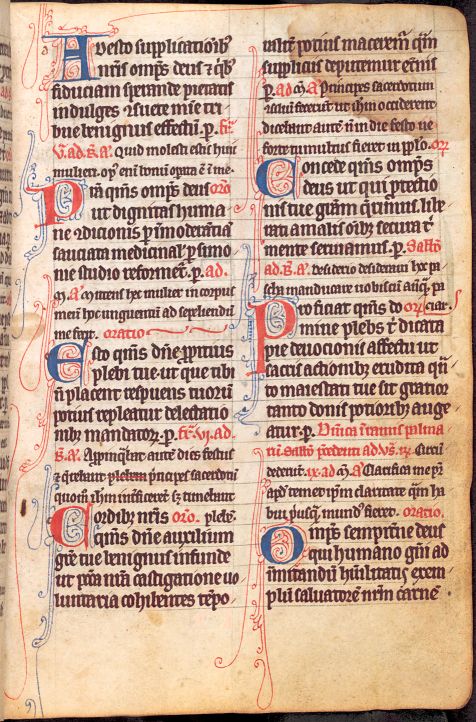 Adesto supplicationib'
nr̄is omp̄s deus ⁊ q̄b'
fiduciam sperande pietatis
indulges ⁊suete mīe tri
bue benignus effectū. p. fr̄.
V. ad. B. a. Quid molesti estis huic
mulieri op' enī bonū opata ē ī me.
Pra q̄m̄s omp̄s deus or̄o
ut dignitas huma
ne ⁊dicionis p īmoderātiā
sauciata medicinal' p simo
nie studio reformet̄. p. ad.
m̄. a. mittens hec mulier in corpus
meū hoc unguentū ad sepeliendū
me fecit. oratio
Esto q̄m̄s dn̄e ppitius
plebi tue. ut que tibi
n̄ placent respuens tuorū
potius repleatur delectatio
nib; mandatoꝝ. p. fr̄. VI. ad.
B. a. Appinq̄bat autē dies festus
⁊ q̄rebant plebem p̄ncipes sacerdotū
quom̄ ihm̄ int̄ficeret s; timebant
Cordib; nr̄is or̄o. plebē.
q̄m̄s dn̄e auxilium
gr̄e tue benignus infunde
ut pctā nr̄a castigatione uo
luntaria cohibentes tēpo
raliter potius maceremr̄ q̄m
suppliciis deputemur et̄nis
p. ad. m̄. a. principes sacerdotum
⁊siliū fecerūt ut ihm̄ occiderent
dicebant autē n̄ in die festo ne
forte tumultus fieret in pplo. or̄o
Concede q̄m̄s omp̄s
deus ut qui ptectio
nis tue gr̄am q̄rimus. libe
rati a malis oīb; secura t'
mente seruiamus. p. Sabb̄o
ad. B. a. desiderio desideraui hoc pa
scha manducare uobiscū anteq̄ pa
Proficiat q̄m̄s do or̄o ciar.
mine plebs t' dicata
pie deuocionis affectu ut
sacris actionib; erudita q̄n
to maiestati tue fit gratior
tanto donis potiorib; auge
atur. p. Dn̄ica ī ramis palma
rū. Sabb̄o p̄cedenti ad. Vs.
decerūt. ad. m̄. a. Clarifica me pr̄
apd' temet ip̄m claritate q̄m ha
bui pusq̄ mund' fieret. oratio.
Omp̄s sempitrne deus
qui humano gn̄i ad
imitandū hūilitatis exem
plū saluatorē nr̄m carnē